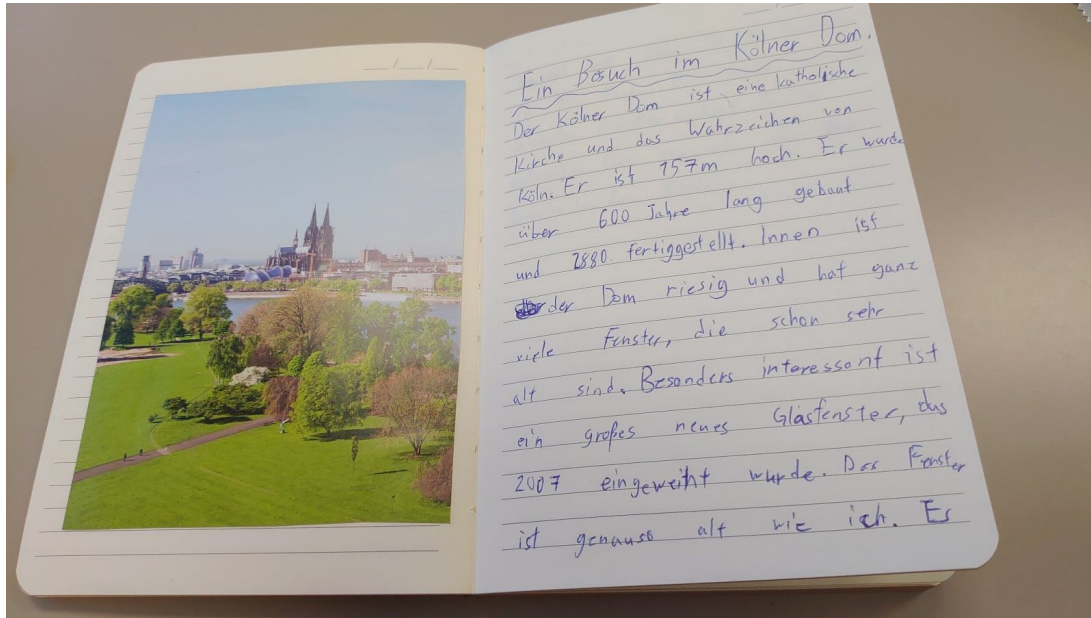 Ein Besuch im Kölner Dom.
Der Kölner Dom ist eine katholische
Kirche und das Wahrzeichen von
Köln. Er ist 157m hoch. Er wurde
über 600 Jahre lang gebaut
und 1880 fertiggestellt. Innen ist
der Dom riesig und hat ganz
viele Fenster, die schon sehr
alt sind. Besonders interessant ist
ein großes neues Glasfenster, das
2007 eingeweiht wurde. Das Fenster
ist genauso alt wie ich. Es